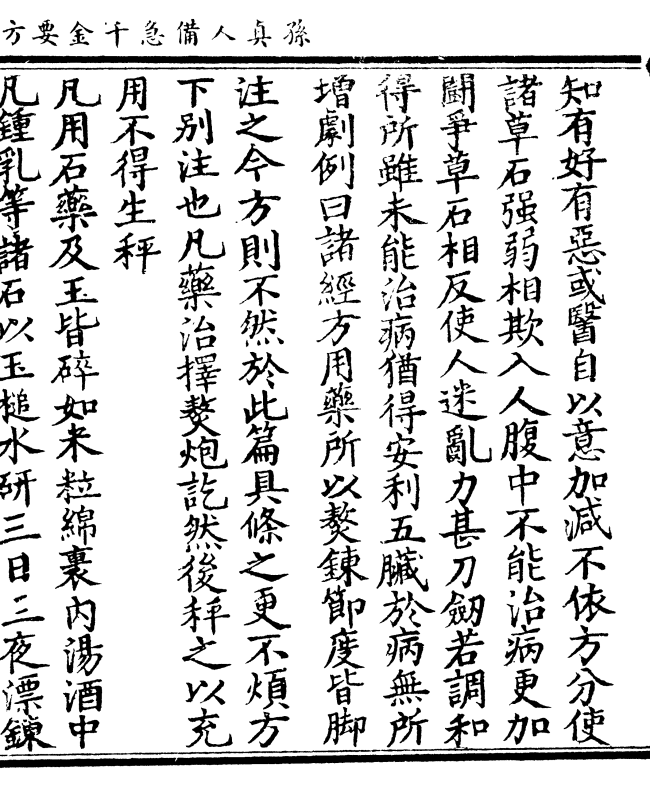 孫真人備急千金要方
知有好有惡或醫自以意加減不依方分使
諸草石强弱相欺入人腹中不能治病更加
鬭爭草石相反使人迷亂力甚刀劒若調和
得所雖未能治病猶得安利五臟於病無所
增劇例曰諸經方用藥所以熬鍊節度皆脚
注之今方則不然於此篇具條之更不煩方
下別注也凡藥治擇熬炮訖然後秤之以充
用不得生秤
凡用石藥及玉皆碎如米粒綿裹內湯酒中
凡鍾乳等諸石以玉槌水研三日三夜漂鍊